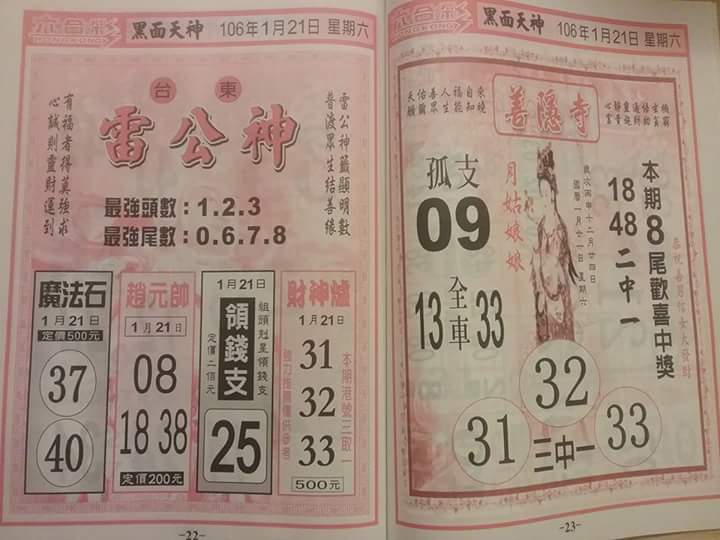 六合彩
HONGKONG
黑面天神
106年1月21日 星期六
台東
雷公神
雷公神籤顯明數
普渡眾生結善緣
有福者得莫強求
心誠則靈財運到
最強頭數：1.2.3
最強尾數：0.6.7.8
魔法石
1月21日
定價500元
37
40
趙元帥
1月21日
08
18 38
定價200元
1月21日
領錢支
組頭剋星領錢支
定價二佰元
25
財神爐
1月21日
本期港號三取一
31
32
33
500元
-22-
黑面天神
106年1月21日 星期六
善隱寺
天佑善人自求
月姑娘娘
孤支
09
全車
13 33
歲次丙申十二月廿四日
國曆一月廿一日星期六
本期8尾歡喜中獎
18
48
二中一
恭祝善男信女大發財
32
31
33
三中一
-23-